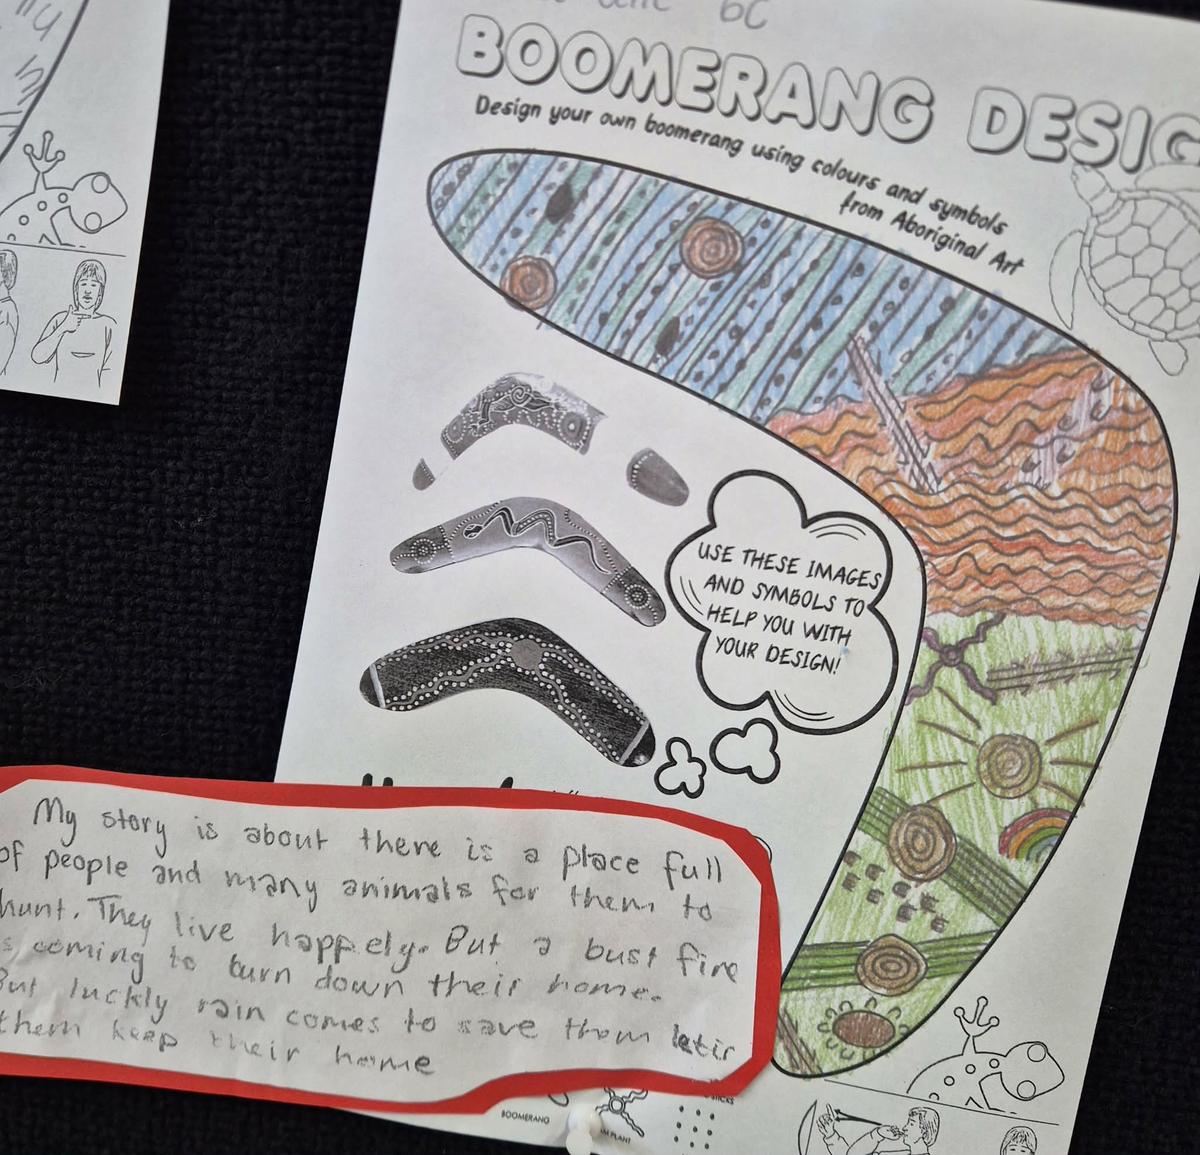 6C
BOOMERANG DESIG
Design your own boomerang using colours and symbols
from Aboriginal Art
USE THESE IMAGES
AND SYMBOLS TO
HELP YOU WITH
YOUR DESIGN!
My story is about there is a place full
of people and many animals for them to
hunt. They live happely. But a bust fire
is coming to burn down their home.
But luckly rain comes to save them letir
them keep their home
BOOMERANG
PLANT
STICKS